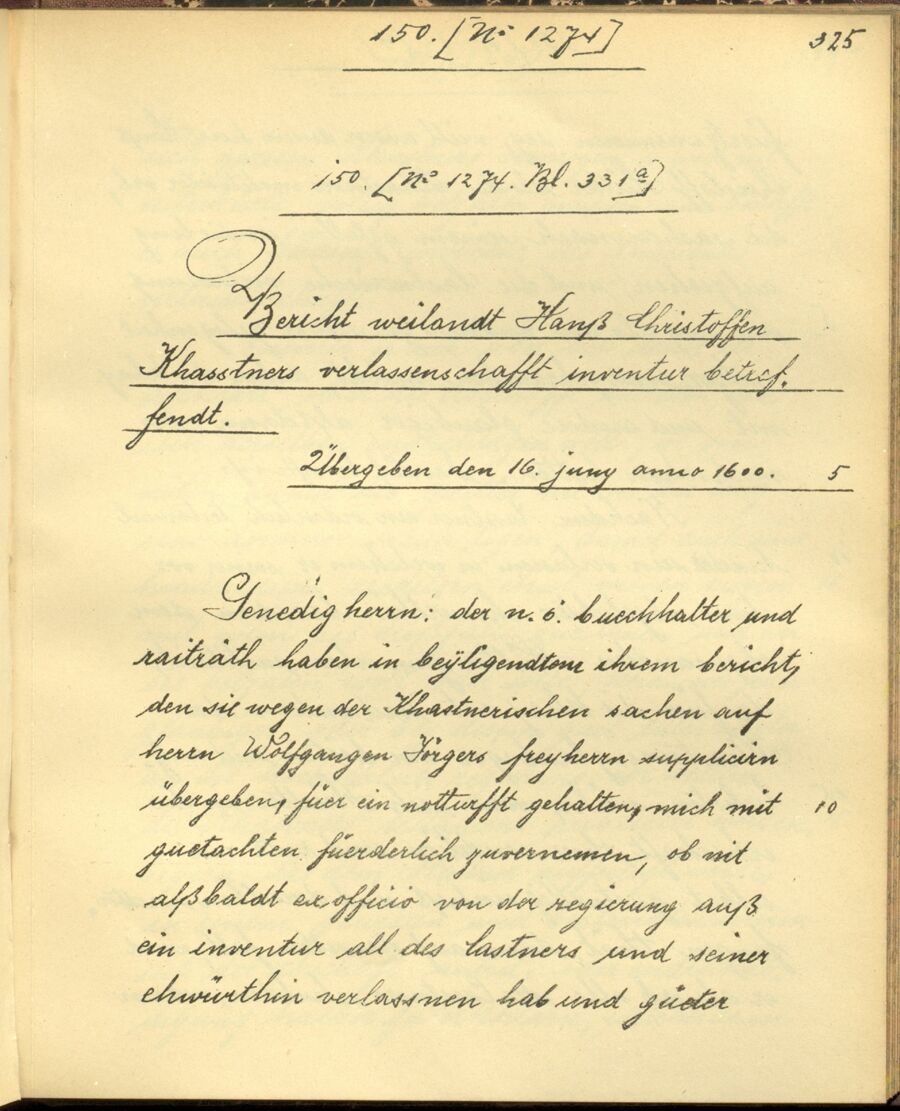 150. [No 1274]
325
150. [No 1274. Bl. 331a]
Bericht weilandt Hanß Christoffen
Khasstners verlassenschafft inventur betref-
fendt.
Übergeben den 16. juny anno 1600. 5
Genedig herrn: der n. ö. buechhalter und
raiträth haben in beÿligendtem ihrem bericht,
den sie wegen der Khastnerischen sachen auf
herrn Wolfgangen Jörgers freyherrn supplicirn
übergeben, füer ein notturfft gehalten, mich mit 10
guetachten füerderlich zuvernemen, ob nit
alßbaldt ex officio von der regierung auß
ein inventur all des Castners und seiner
ehwürthin verlassnen hab und güeter